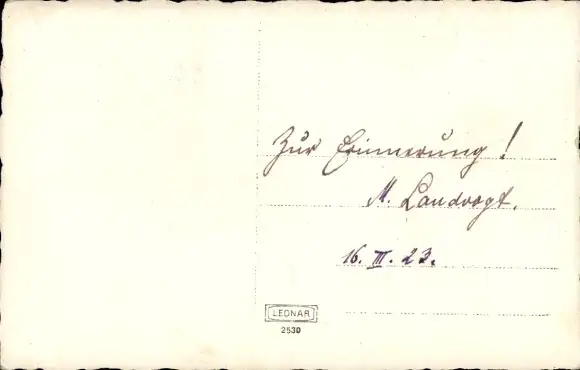 Zur Erinnerung!
M. Landvogt.
16. III. 23.
LEONAR
2530